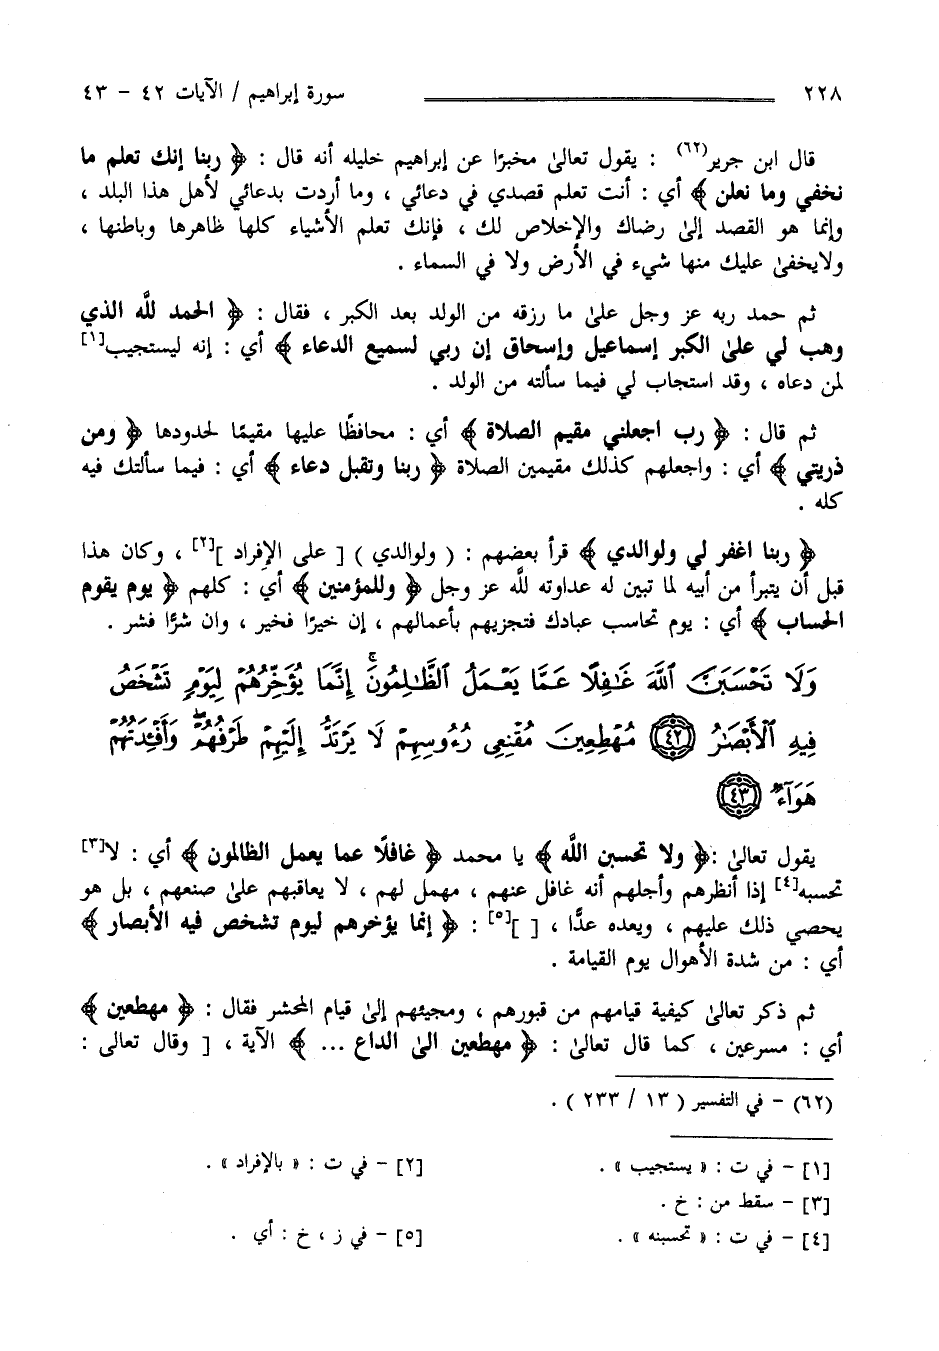 ٢٢٨ سورة إبراهيم / الآيات ٤٢ - ٤٣
قال ابن جرير(٦٢) : يقول تعالىٰ مخبرًا عن إبراهيم خليله أنه قال : ﴿ ربنا إنك تعلم ما
نخفي وما نعلن ﴾ أي : أنت تعلم قصدي في دعائي ، وما أردت بدعائي لأهل هذا البلد ،
وإنما هو القصد إلىٰ رضاك والإخلاص لك ، فإنك تعلم الأشياء كلها ظاهرها وباطنها ،
ولايخفىٰ عليك منها شيء في الأرض ولا في السماء .
ثم حمد ربه عز وجل علىٰ ما رزقه من الولد بعد الكبر ، فقال : ﴿ الحمد للَّه الذي
وهب لي علىٰ الكبر إسماعيل وإسحاق إن ربي لسميع الدعاء ﴾ أي : إنه ليستجيب[١]
لمن دعاه ، وقد استجاب لي فيما سألته من الولد .
ثم قال : ﴿ رب اجعلني مقيم الصلاة ﴾ أي : محافظًا عليها مقيمًا لحدودها ﴿ ومن
ذريتي ﴾ أي : واجعلهم كذلك مقيمين الصلاة ﴿ ربنا وتقبل دعاء ﴾ أي : فيما سألتك فيه
كله .
﴿ ربنا اغفر لي ولوالدي ﴾ قرأ بعضهم : ( ولوالدي ) [ على الإفراد ][٢] ، وكان هذا
قبل أن يتبرأ من أبيه لما تبين له عداوته للَّه عز وجل ﴿ وللمؤمنين ﴾ أي : كلهم ﴿ يوم يقوم
الحساب ﴾ أي : يوم تحاسب عبادك فتجزيهم بأعمالهم ، إن خيرًا فخير ، وان شرًّا فشر .
وَلَا تَحْسَبَنَّ ٱللَّهَ غَٰفِلًا عَمَّا يَعْمَلُ ٱلظَّٰلِمُونَۚ إِنَّمَا يُؤَخِّرُهُمْ لِيَوْمٍ تَشْخَصُ
فِيهِ ٱلْأَبْصَٰرُ ٤٢ مُهْطِعِينَ مُقْنِعِى رُءُوسِهِمْ لَا يَرْتَدُّ إِلَيْهِمْ طَرْفُهُمْۖ وَأَفْـِٔدَتُهُمْ
هَوَآءٌ ٤٣
يقول تعالىٰ :﴿ ولا تحسبن اللَّه ﴾ يا محمد ﴿ غافلًا عما يعمل الظالمون ﴾ أي : لا[٣]
تحسبه[٤] إذا أنظرهم وأجلهم أنه غافل عنهم ، مهمل لهم ، لا يعاقبهم علىٰ صنعهم ، بل هو
يحصي ذلك عليهم ، ويعده عدًّا ، [ ][٥] : ﴿ إنما يؤخرهم ليوم تشخص فيه الأبصار ﴾
أي : من شدة الأهوال يوم القيامة .
ثم ذكر تعالىٰ كيفية قيامهم من قبورهم ، ومجيئهم إلىٰ قيام المحشر فقال : ﴿ مهطعين ﴾
أي : مسرعين ، كما قال تعالىٰ : ﴿ مهطعين الىٰ الداع ... ﴾ الآية ، [ وقال تعالى :
(٦٢) - في التفسير ( ١٣ / ٢٣٣ ) .
[١] - في ت : « يستجيب » . [٢] - في ت : « بالإفراد » .
[٣] - سقط من : خ .
[٤] - في ت : « تحسبنه » . [٥] - في ز ، خ : أي .